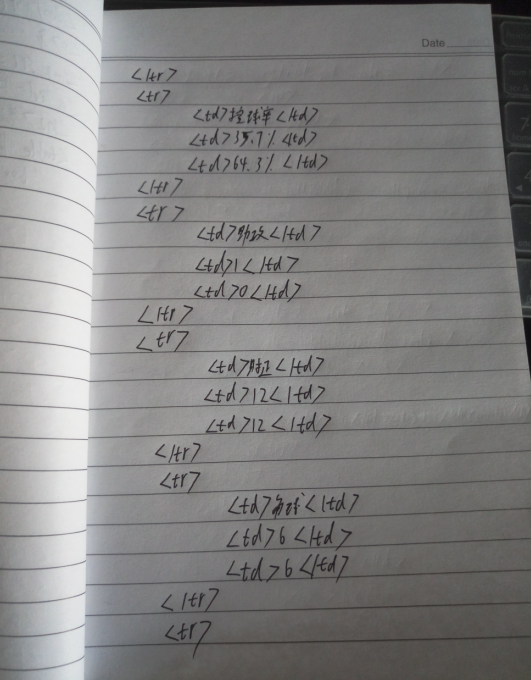 Date
</tr>
<tr>
<td>控球率</td>
<td>35.7%</td>
<td>64.3%</td>
</tr>
<tr>
<td>助攻</td>
<td>1</td>
<td>0</td>
</tr>
<tr>
<td></td>
<td>12</td>
<td>12</td>
</tr>
<tr>
<td>角球</td>
<td>6</td>
<td>6</td>
</tr>
<tr>